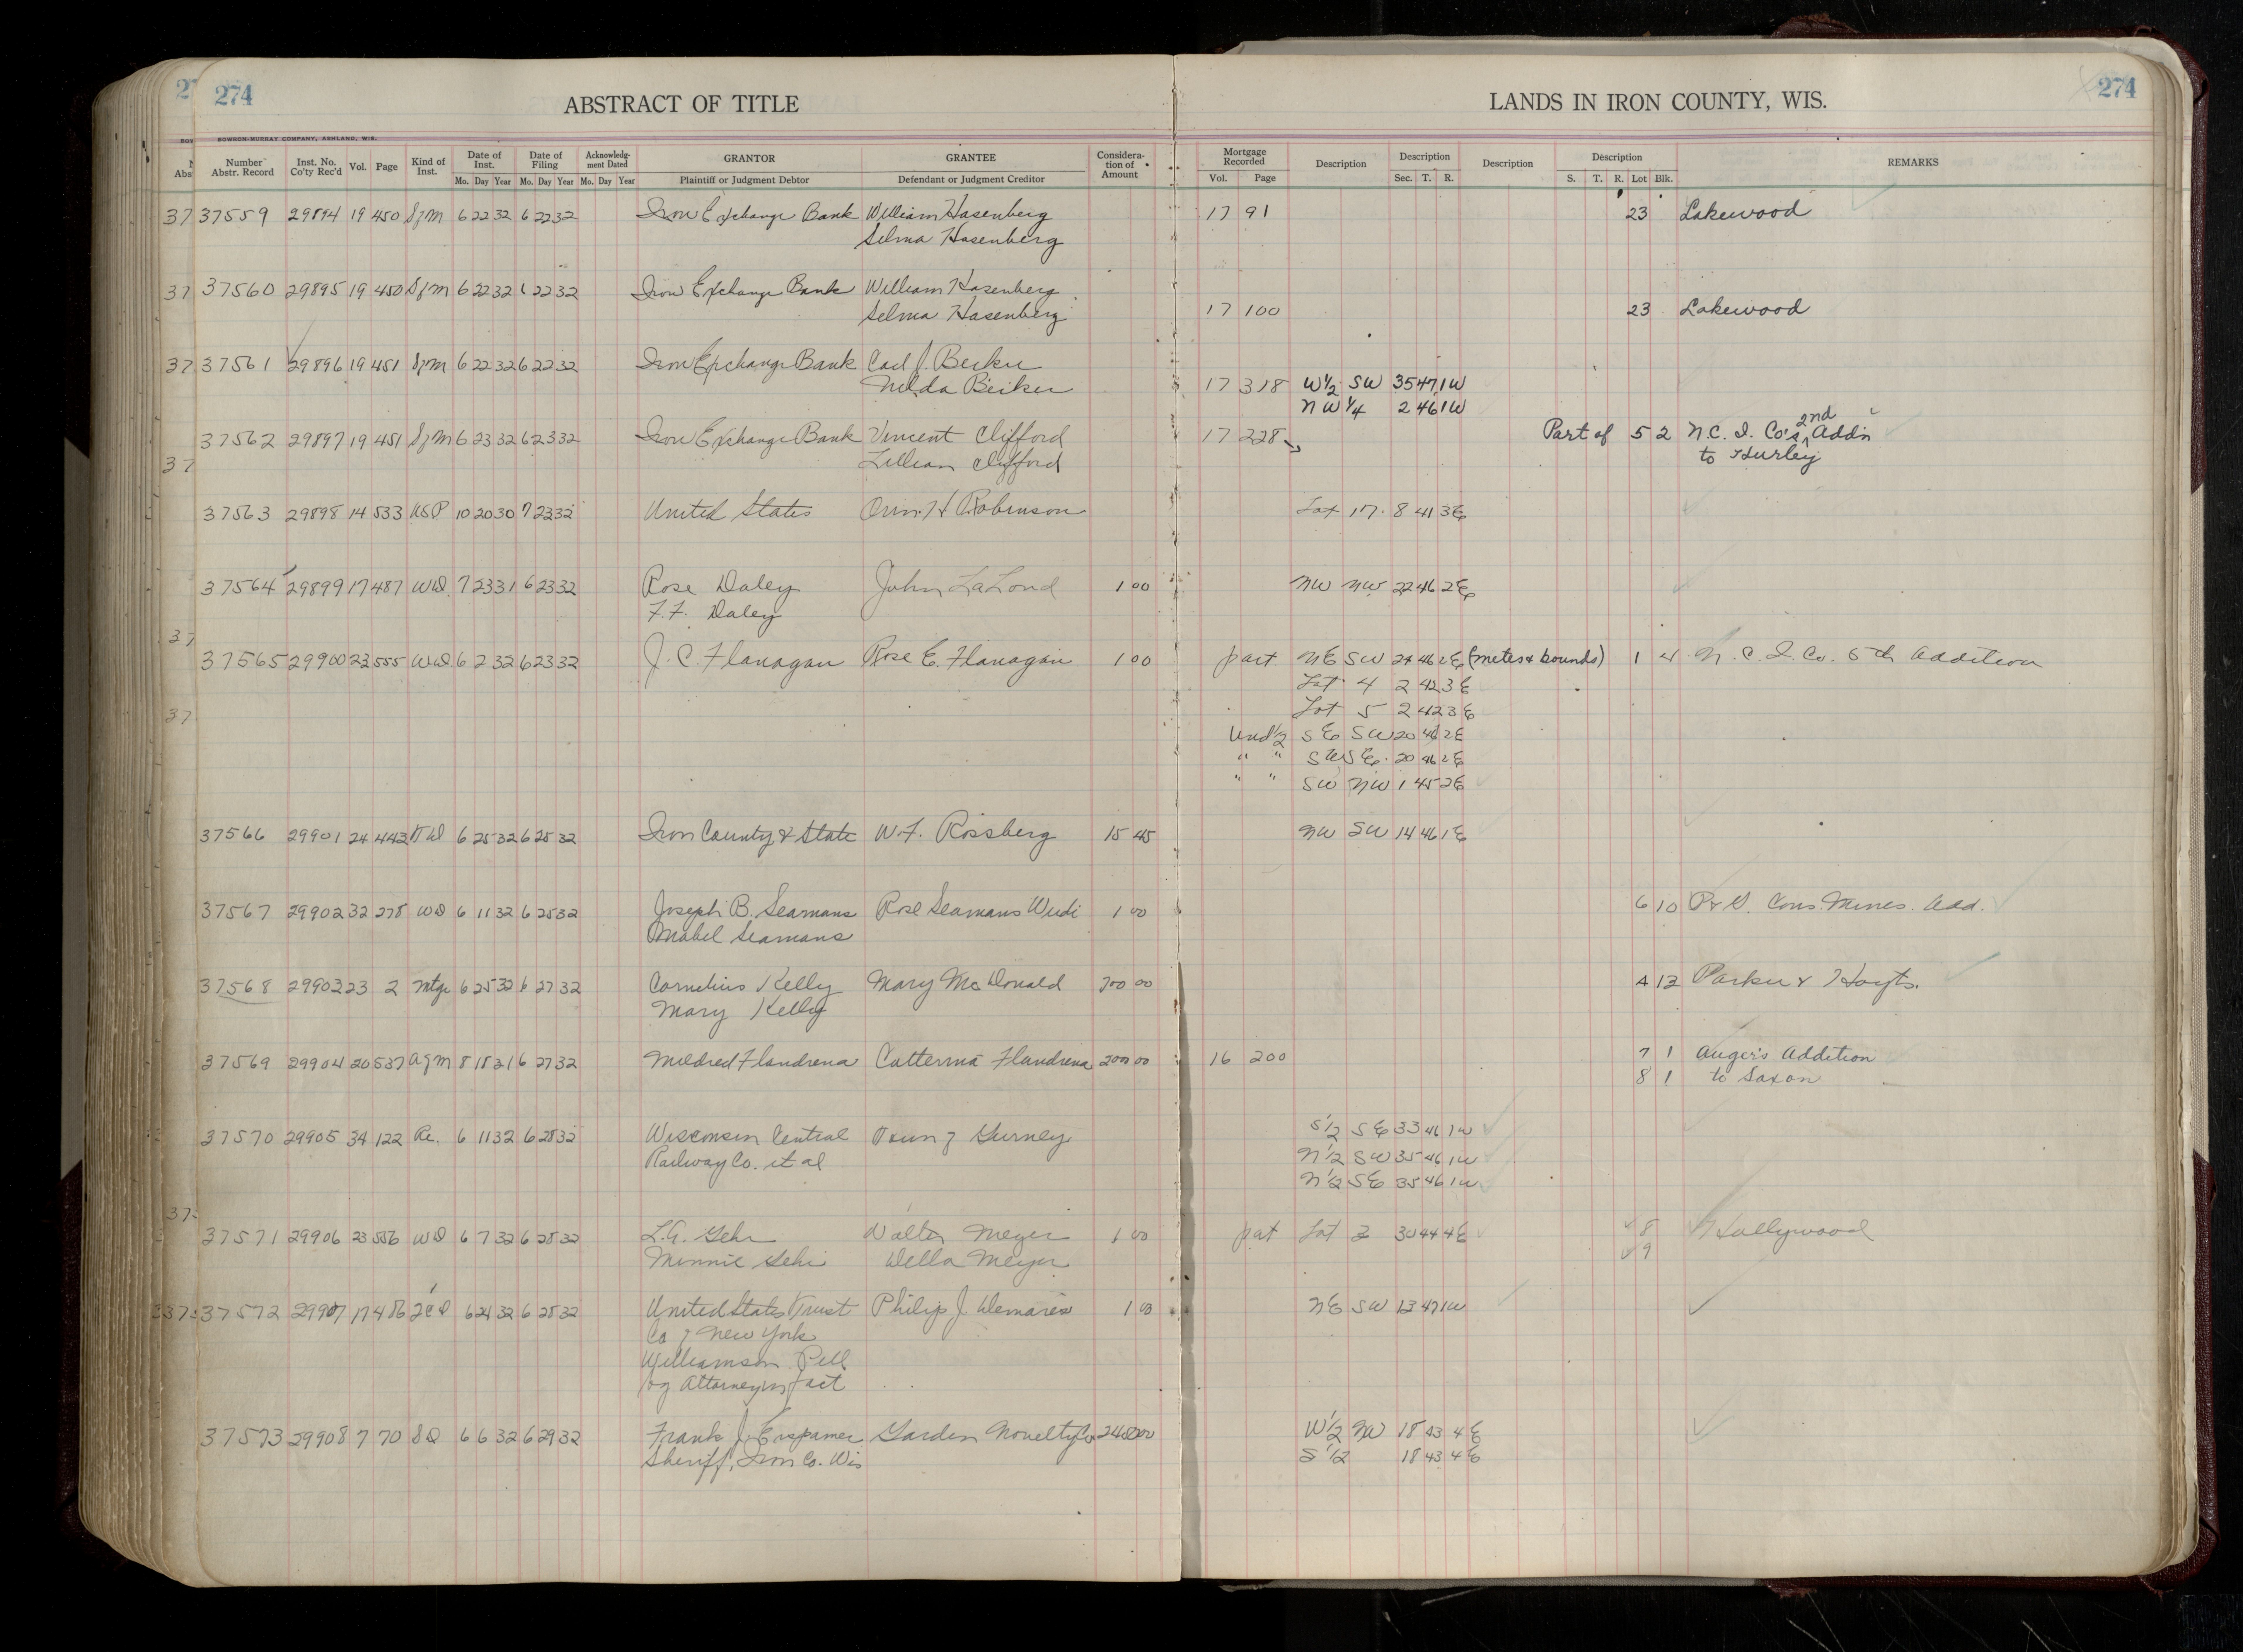 274
ABSTRACT OF TITLE
LANDS IN IRON COUNTY, WIS.
274
BOWRON-MURRAY COMPANY, ASHLAND, WIS.
Number Abstr. Record Inst. No. Co'ty Rec'd Vol. Page Kind of Inst. Date of Inst. Mo. Day Year Date of Filing Mo. Day Year Acknowledg-ment Dated Mo. Day Year GRANTOR Plaintiff or Judgment Debtor GRANTEE Defendant or Judgment Creditor Considera-tion of Amount Mortgage Recorded Vol. Page Description Description Sec. T. R. Description Description S. T. R. Lot Blk. REMARKS
37559 29894 19 450 Sfm 6 22 32 6 22 32 Iron Exchange Bank William Hasenberg 17 91 23 Lakewood
Selma Hasenberg
37560 29895 19 450 Sfm 6 22 32 6 22 32 Iron Exchange Bank William Hasenberg
Selma Hasenberg 17 100 23 Lakewood
37561 29896 19 451 Sfm 6 22 32 6 22 32 Iron Exchange Bank Carl J. Becker
Becker 17 318 W 1/2 SW 35 47 1W
NW 1/4 2 46 1W
37562 29897 19 451 Sfm 6 23 32 6 23 32 Iron Exchange Bank Vincent Clifford 17 228 Part of 5 2 N. C. I. Co's 2nd Add'n
Lillian Clifford to Hurley
37563 29898 14 533 USP 10 20 30 7 22 32 United States Orin H Robinson Lot 17 8 41 3E
37564 29899 17 487 WD 7 23 31 6 23 32 Rose Daley John LaLond 1 00 NW NW 22 46 2E
F. F. Daley
37565 29900 23 555 WD 6 2 32 6 23 32 J. C. Flanagan Rose E. Flanagan 1 00 part NE SW 24 46 2E (metes & bounds) 1 4 N. C. I. Co. 5th Addition
Lot 4 2 42 3E
Lot 5 2 42 3E
Und 1/2 SE SW 20 46 2E
" " SW SE 20 46 2E
" " SW NW 1 45 2E
37566 29901 24 443 TD 6 25 32 6 25 32 Iron County & State W. F. Rossberg 15 45 NW SW 14 46 1E
37567 29902 32 278 WD 6 11 32 6 25 32 Joseph B. Seamans Rose Seamans 1 00 6 10 P & G. Cons. Mines. Add.
Mabel Seamans
37568 29903 23 2 Mtge 6 25 32 6 27 32 Cornelius Kelly Mary McDonald 700 00 4 13 Parker & Hoyts.
Mary Kelly
37569 29904 20 537 Afm 8 18 31 6 27 32 Mildred Flandrena Catterina Flandrena 2000 00 16 200 7 1 Auger's Addition
8 1 to Saxon
37570 29905 34 122 Re. 6 11 32 6 28 32 Wisconsin Central Town of Gurney S 1/2 SE 33 46 1W
Railway Co. et al N 1/2 SW 35 46 1W
N 1/2 SE 35 46 1W
37571 29906 23 556 WD 6 7 32 6 28 32 L. A. Gehr Walter Meyer 1 00 part Lot 2 30 44 4E 8 Hollywood
Minnie Gehr Della Meyer 9
37572 29907 17 486 6 21 32 6 28 32 United States Trust Philip J. Demares 1 00 NE SW 13 47 1W
Co of New York
Williamson Pell
by Attorney in fact
37573 29908 7 70 SD 6 6 32 6 29 32 Frank J. Erspamer Garden Novelty Co W 1/2 NW 18 43 4E
Sheriff, Iron Co. Wis S 1/2 18 43 4E